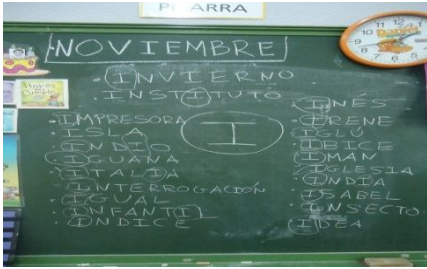 PIZARRA
NOVIEMBRE
INVIERNO
INSTITUTO
IMPRESORA
ISLA
INDIO
IGUANA
ITALIA
INTERROGACIÓN
IGUAL
INFANTIL
INDICE
I
INÉS
IRENE
IGLÚ
IBICE
IMAN
IGLESIA
INDÍA
ISABEL
INSECTO
IDEA